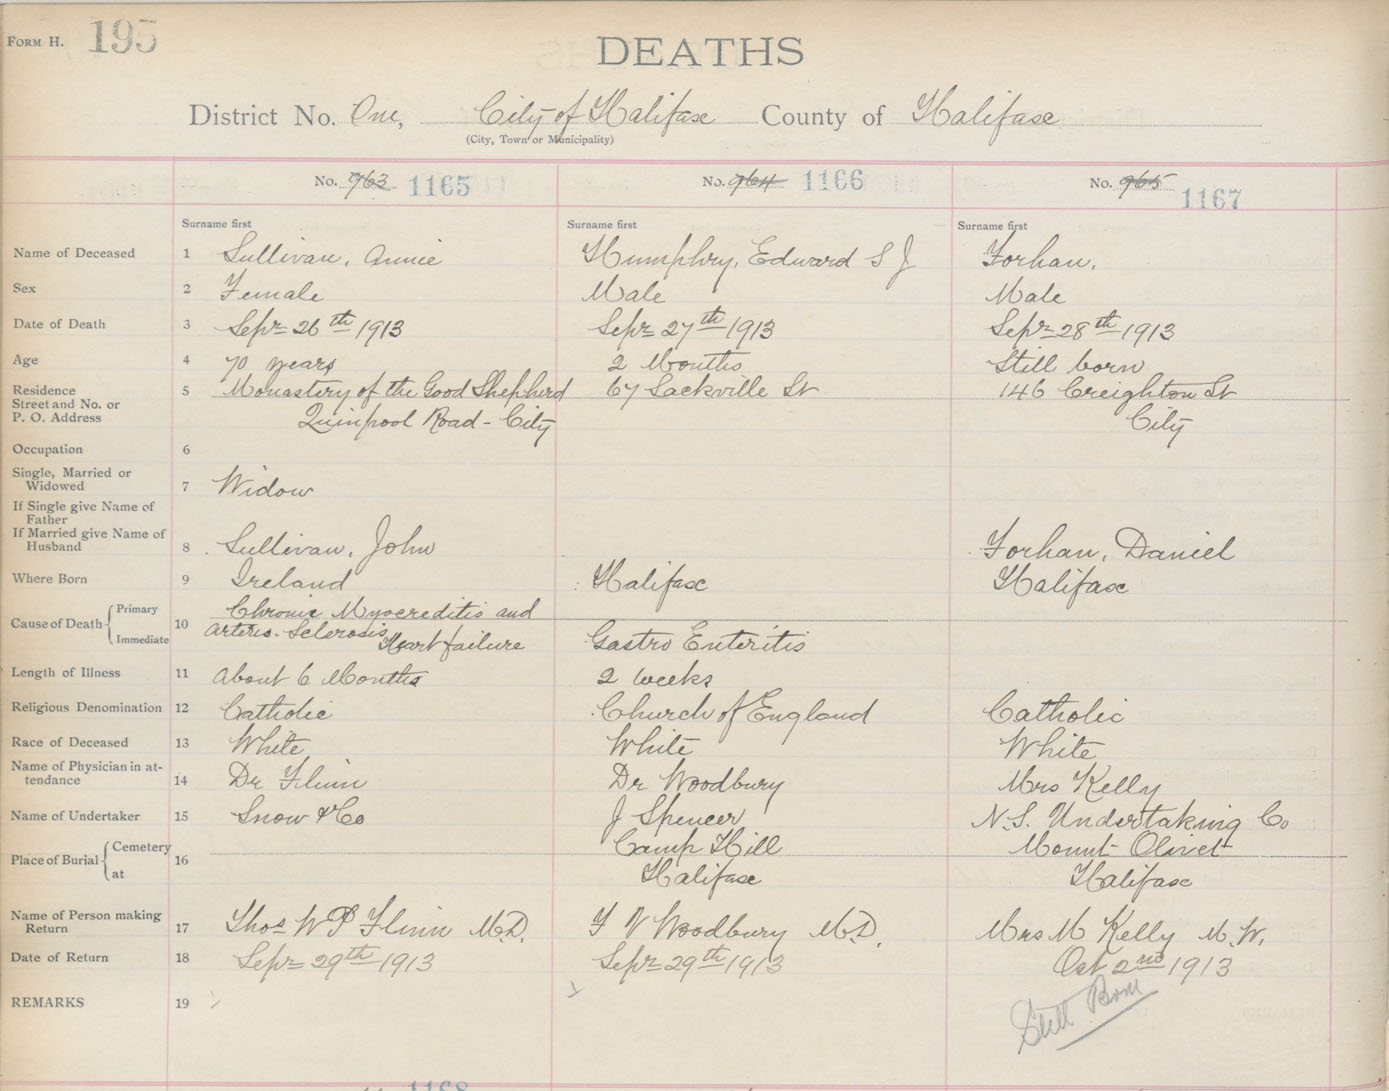 FORM H. 195
DEATHS
District No. One, City of Halifax County of Halifax
(City, Town or Municipality)
No. 963 1165 No. 964 1166 No. 965 1167
Surname first Surname first Surname first
Name of Deceased 1 Sullivan, Annie Humphry, Edward S J Forhan,
Sex 2 Female Male Male
Date of Death 3 Sepr 26th 1913 Sepr 27th 1913 Sepr 28th 1913
Age 4 70 years 2 Months Still born
Residence 5 Monastery of the Good Shepherd 67 Sackville St 146 Creighton St
Street and No. or
P. O. Address Quinpool Road - City City
Occupation 6
Single, Married or
Widowed 7 Widow
If Single give Name of
Father
If Married give Name of
Husband 8 Sullivan, John Forhan, Daniel
Where Born 9 Ireland Halifax Halifax
Cause of Death Primary Immediate 10 Chronic Myocreditis and
Arterio-Sclerosis Heart failure Gastro Enteritis
Length of Illness 11 About 6 Months 2 weeks
Religious Denomination 12 Catholic Church of England Catholic
Race of Deceased 13 White White White
Name of Physician in at-
tendance 14 Dr Flinn Dr Woodbury Mrs Kelly
Name of Undertaker 15 Snow & Co J Spencer N.S. Undertaking Co
Place of Burial Cemetery 16 Camp Hill Mount Olivet
at Halifax Halifax
Name of Person making
Return 17 Thos W P Flinn M.D. F V Woodbury M.D. Mrs M Kelly M.W.
Date of Return 18 Sepr 29th 1913 Sepr 29th 1913 Oct 2nd 1913
REMARKS 19 Still Born
1168